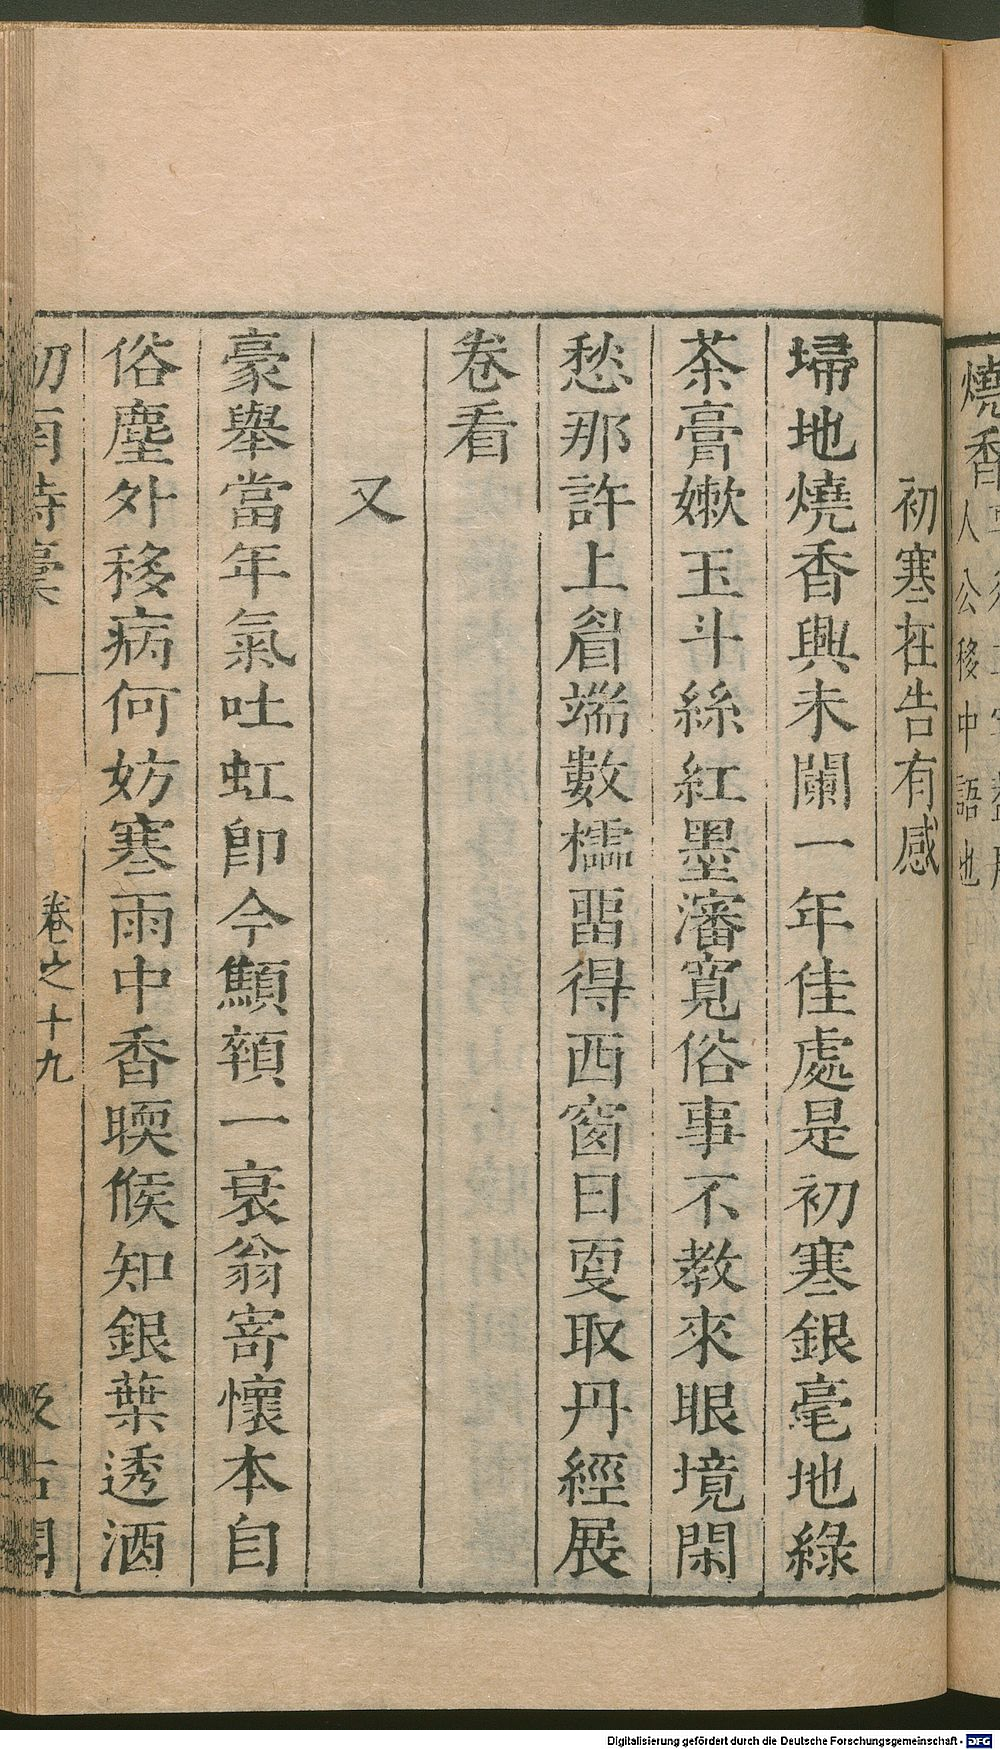 燒香
人公移中語也
初寒在告有感
埽地燒香興未闌一年佳處是初寒銀毫地綠
茶膏嫰玉斗絲紅墨瀋寬俗事不教來眼境閑
愁那許上眉端數櫺畱得西窗日更取丹經展
卷看
又
豪舉當年氣吐虹卽今顦顇一衰翁寄懷本自
俗塵外移病何妨寒雨中香暝候知銀葉透酒
劒南詩稾
卷之十九
汲古閣
Digitalisierung gefördert durch die Deutsche Forschungsgemeinschaft - DFG